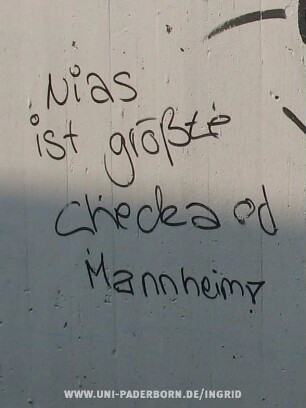 Nias
ist größte
checka od
Mannheim?
WWW.UNI-PADERBORN.DE/INGRID